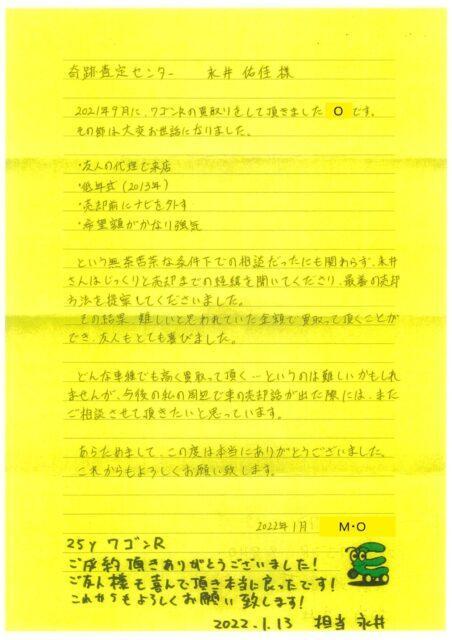 奇跡査定センター　永井 佑佳 様
2021年9月に、ワゴンRの買取りをして頂きました O です。
その節は大変お世話になりました。
・友人の代理で来店
・低年式(2013年)
・売却前にナビを外す
・希望額がかなり強気
という無茶苦茶な条件下での相談だったにも関わらず、永井
さんはじっくりと売却までの経緯を聞いてくださり、最善の売却
方法を提案してくださいました。
その結果、難しいと思われていた金額で買取って頂くことが
でき、友人もとても喜びました。
どんな車種でも高く買取って頂く…というのは難しいかもしれ
ませんが、今後の私の周辺で車の売却話が出た際には、また
ご相談させて頂きたいと思っています。
あらためまして、この度は本当にありがとうございました。
これからもよろしくお願い致します。
2022年1月 M・O
25y ワゴンR
ご成約頂きありがとうございました!
ご友人様も喜んで頂き本当に良ったです!
これからもよろしくお願い致します!
2022.1.13 担当 永井